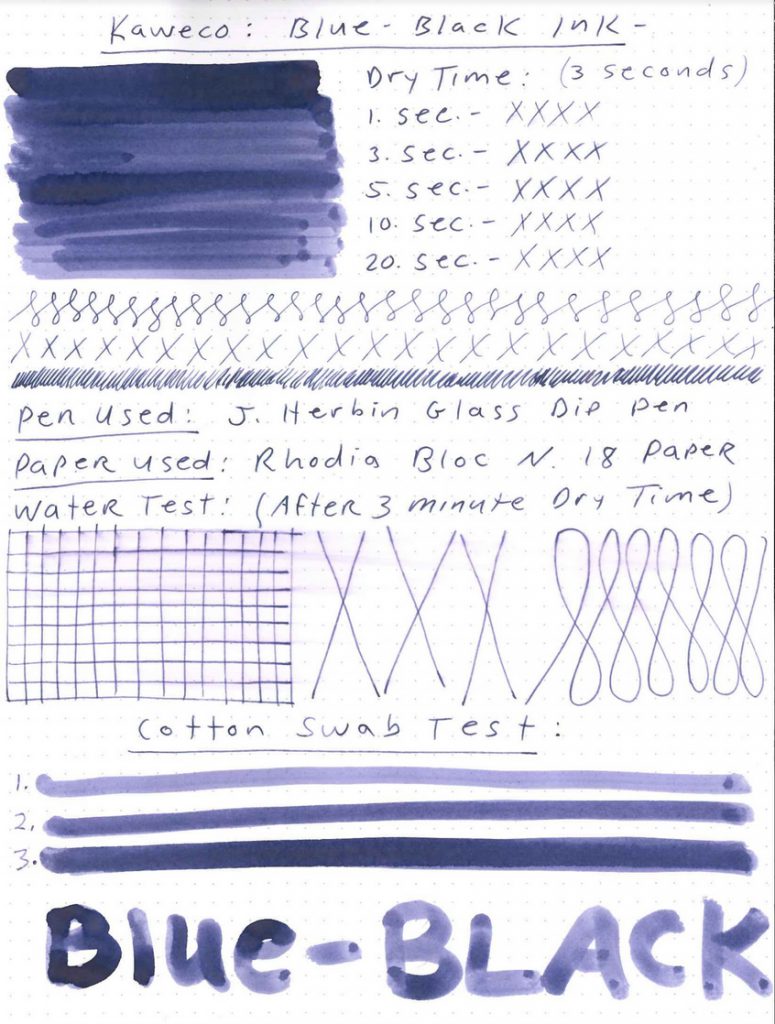 Kaweco: Blue-Black Ink-
Dry Time: (3 seconds)
1. sec.- XXXX
3. sec.- XXXX
5. sec.- XXXX
10. sec.- XXXX
20. sec.- XXXX
XXXXXXXXXXXXXXXXXXXXXX
Pen Used: J. Herbin Glass Dip Pen
Paper Used: Rhodia Bloc N. 18 Paper
Water Test: (After 3 minute Dry Time)
Cotton Swab Test:
1.
2.
3.
Blue-BLACK